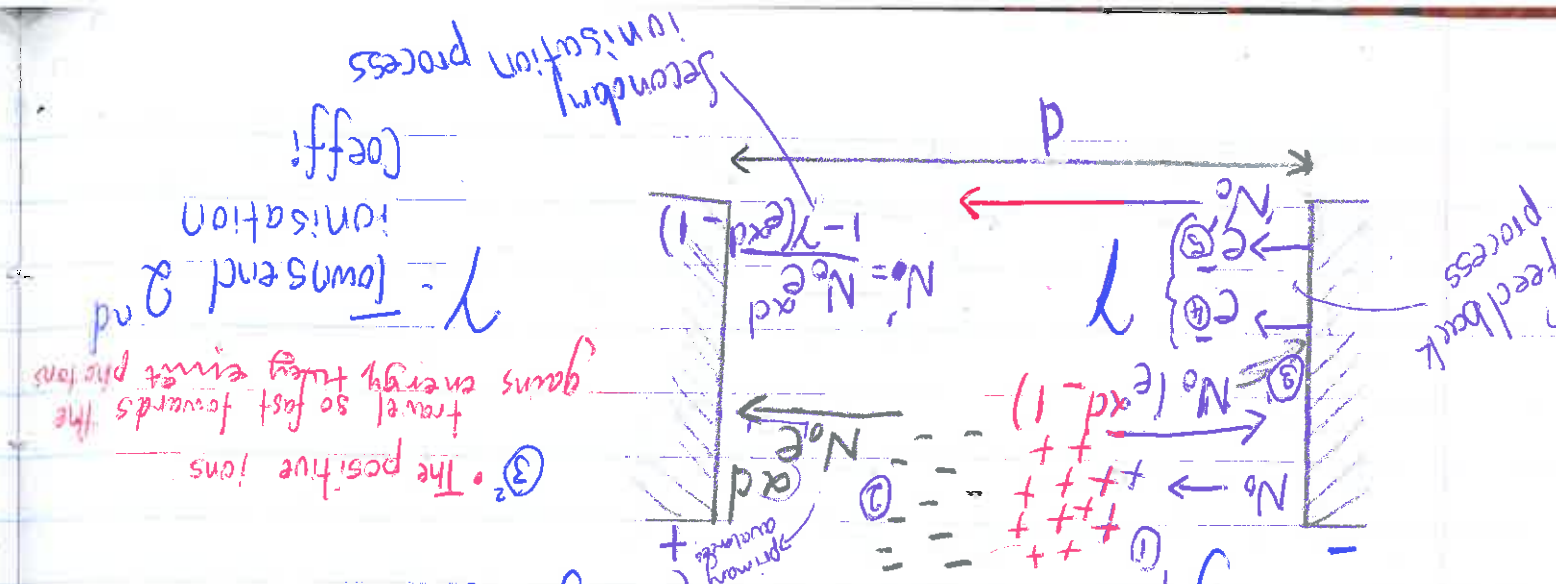 primary
avalanches
- ① + + - - +
N₀ → + + + ② N₀e^αd
③ N₀(e^αd - 1)
③² • The positive ions
travel so fast towards the
gains energy they emit photons
feedback
process
e ④
e ⑤
N₀'
γ
N = N₀'e^αd / 1 - γ(e^αd - 1)
γ - Townsend 2nd
ionisation
Coeffi
d
Secondary
ionisation process